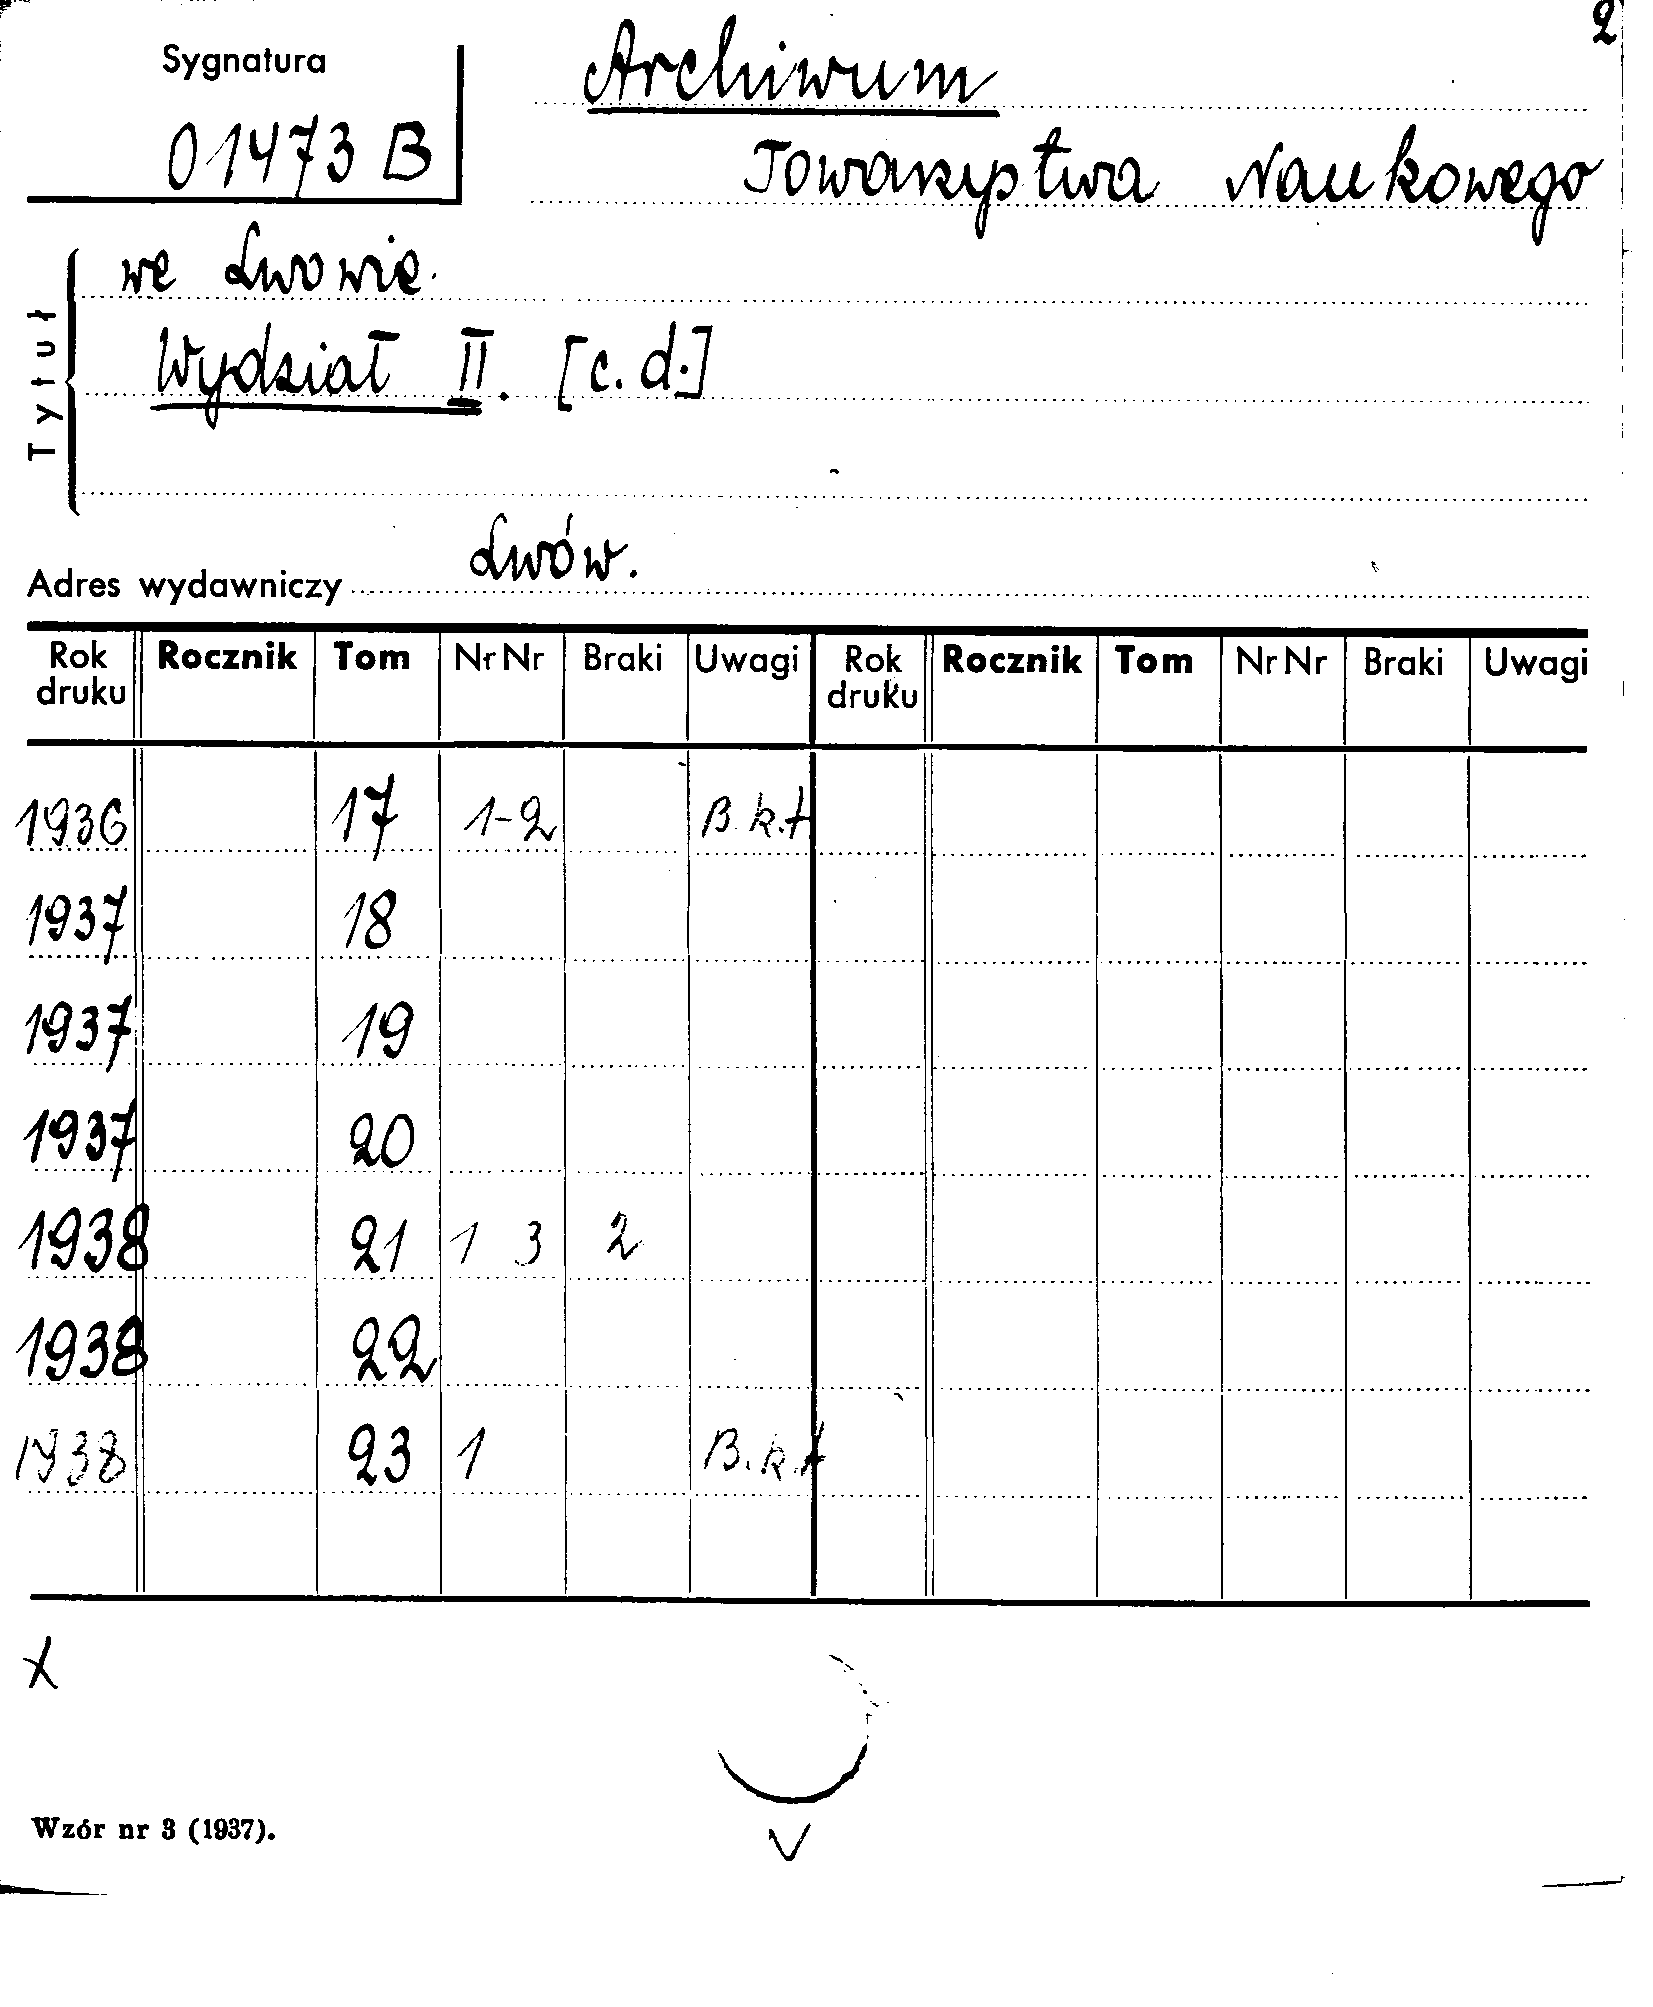 2
Sygnatura
01473 B
Archiwum
Towarzystwa Naukowego
we Lwowie.
Wydział II. [c.d.]
Tytuł
Lwów.
Adres wydawniczy
Rok druku Rocznik Tom Nr Nr Braki Uwagi Rok druku Rocznik Tom Nr Nr Braki Uwagi
1936 17 1-2 B.k.t
1937 18
1937 19
1937 20
1938 21 1 3 2
1938 22
1938 23 1 B.k.t
x
Wzór nr 3 (1937).